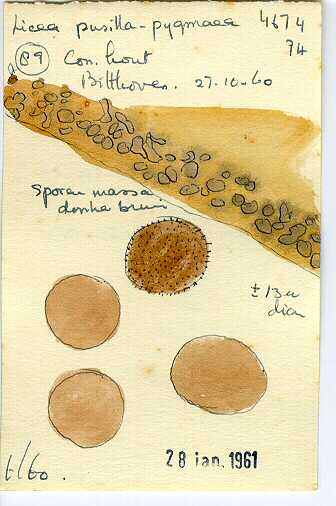 Licea pusilla-pygmaea 4674
74
89 Con. hout
Bilthoven. 27-10-60
Sporen massa
donker bruin
± 13 u
dia
6/60.
28 jan. 1961